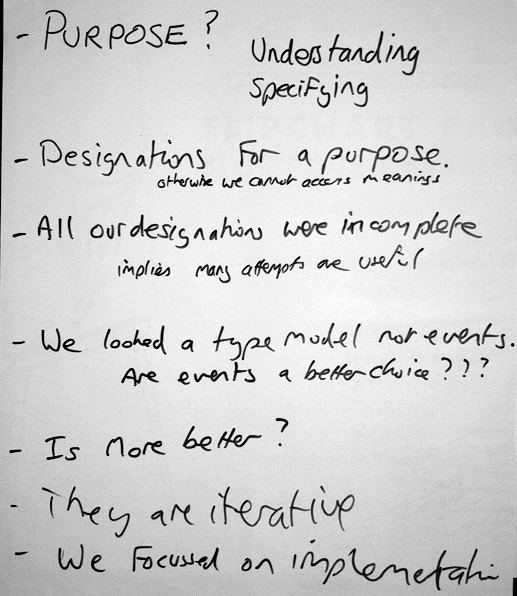 - PURPOSE?
Understanding
Specifying
- Designations for a purpose.
otherwise we cannot access meanings
- All our designations were incomplete
implies many attempts are useful
- We looked a type model not events.
Are events a better choice???
- Is more better?
- They are iterative
- We Focussed on implemetati